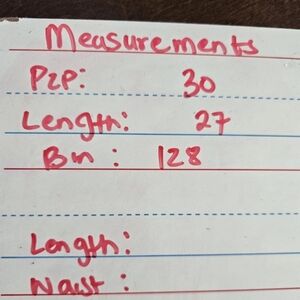 Measurements
P2P: 30
Length: 27
Bin : 128
Length:
Waist :